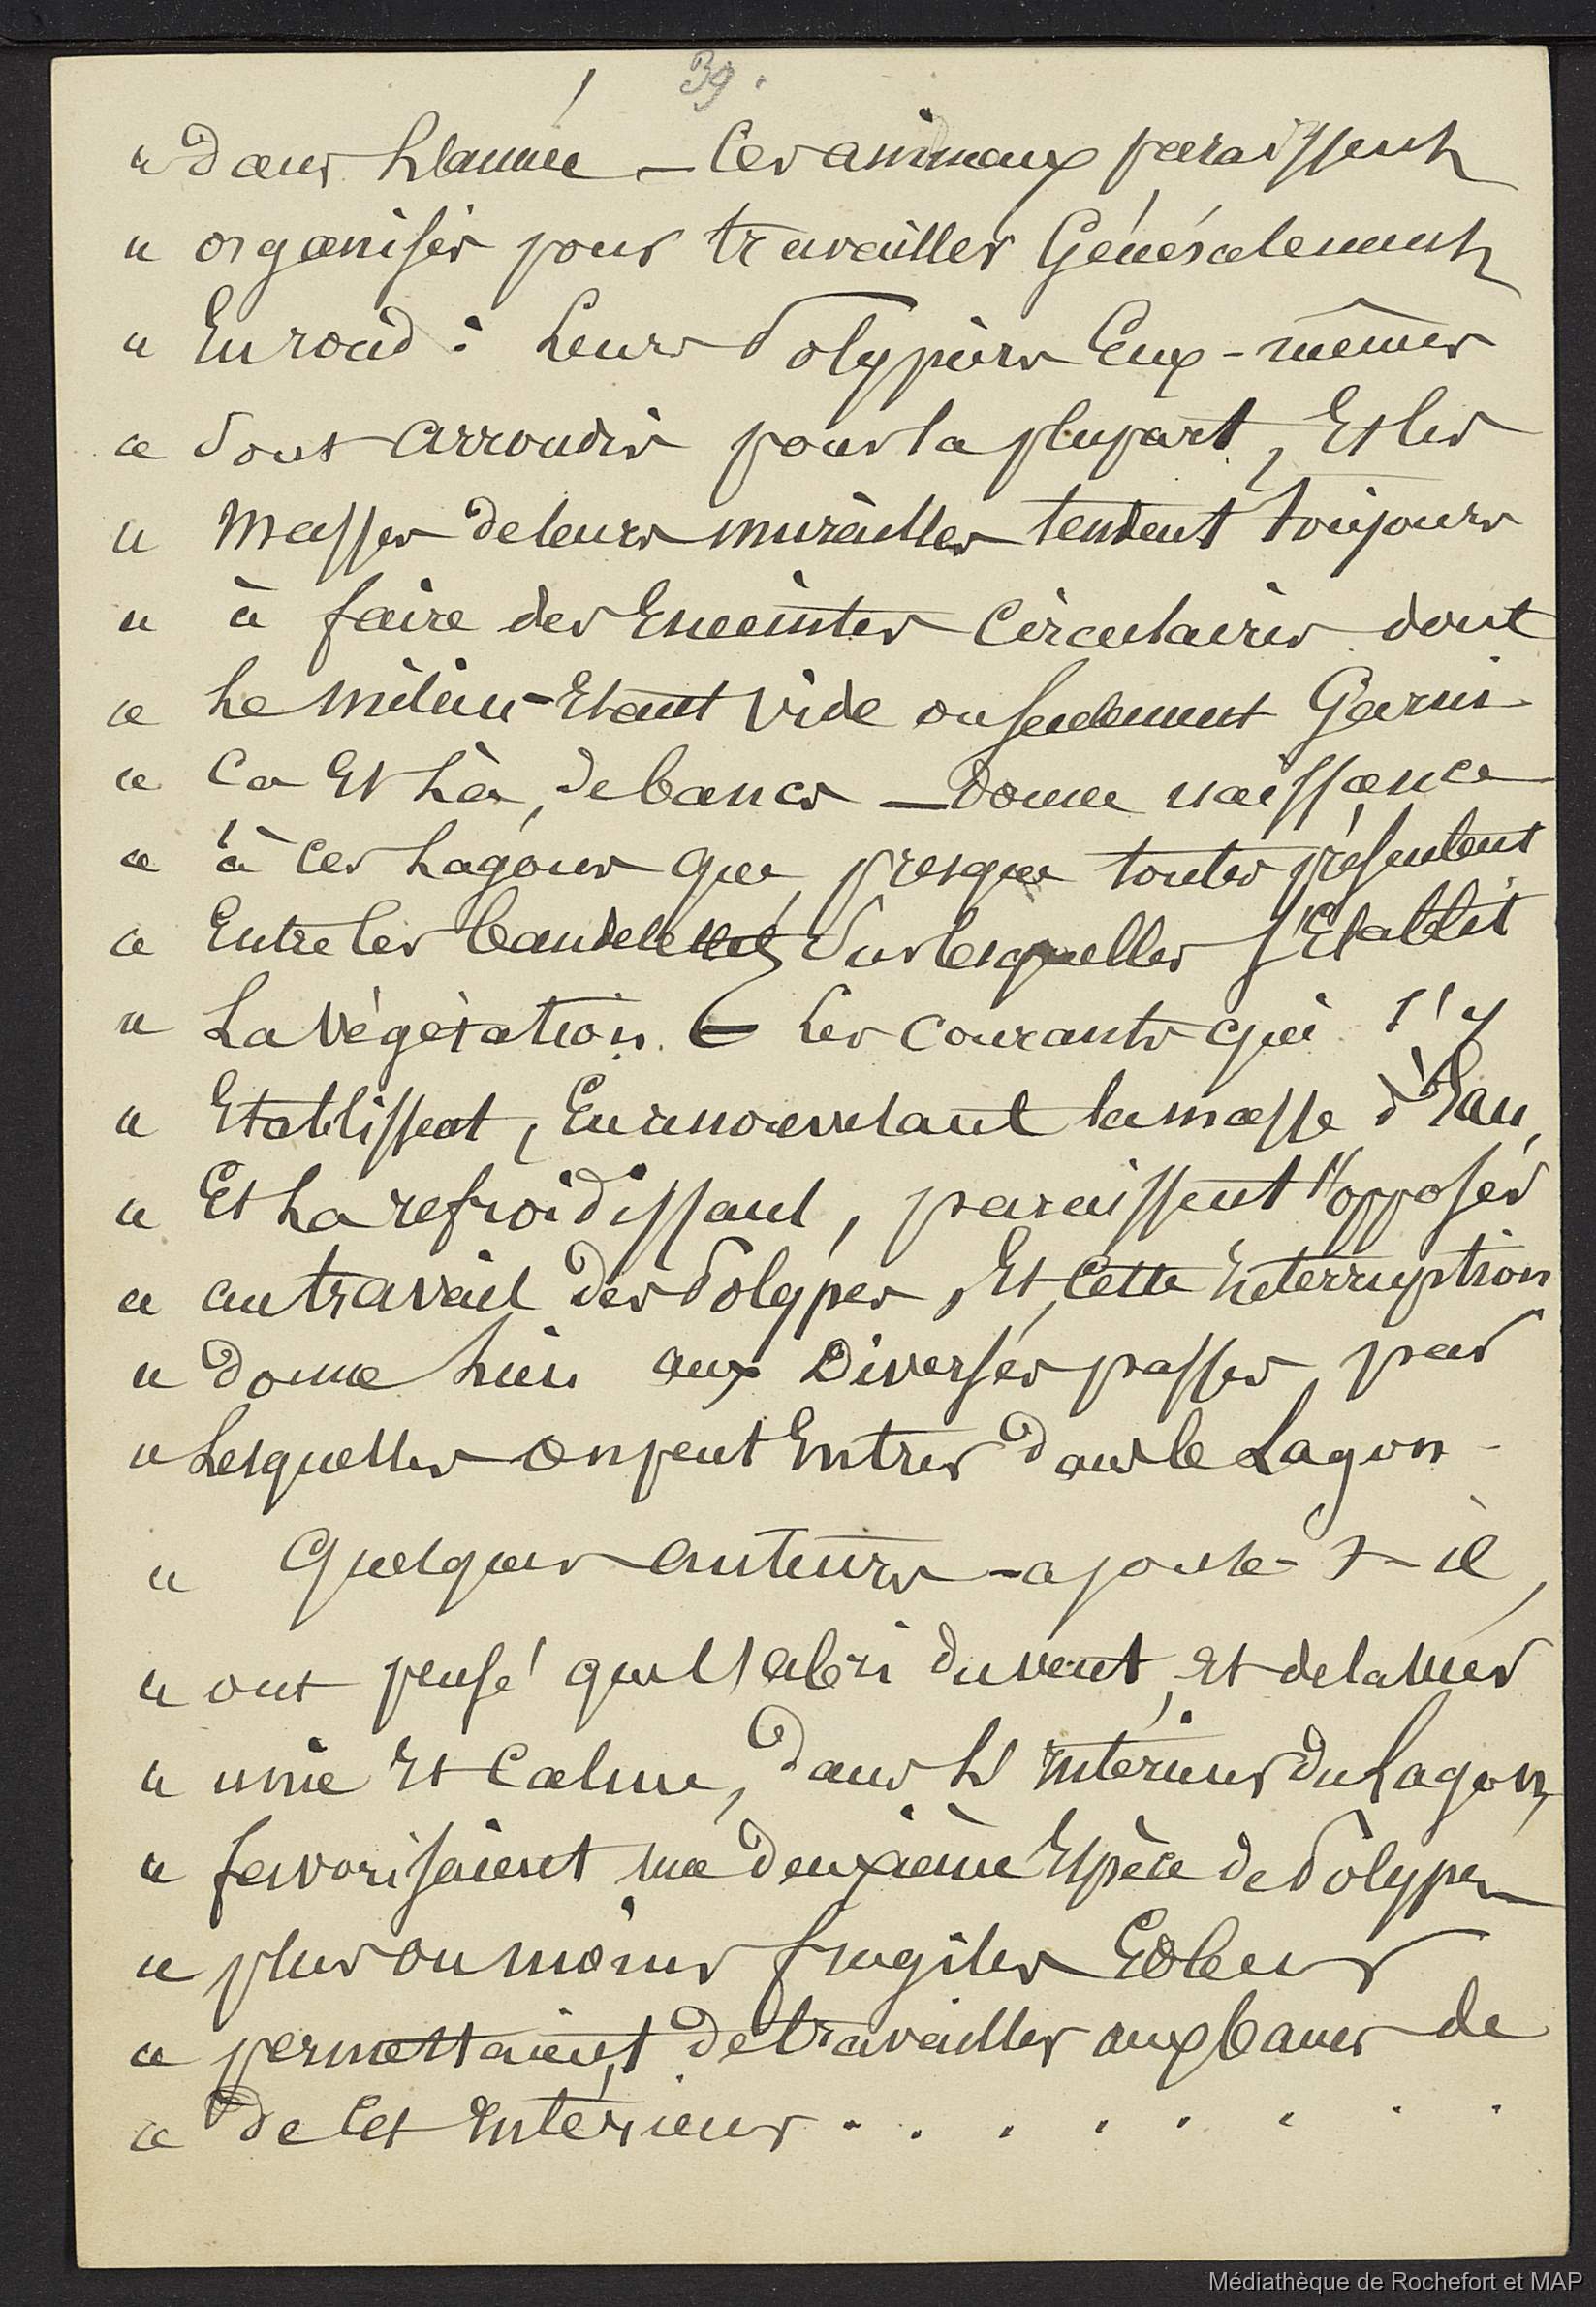 39.
" Dans l'année — Ces animaux paraissent
" organisés pour travailler Généralement
" En rond : Leurs Polypiers Eux-mêmes
" Sont arrondis pour la plupart, Et les
" Masses de leurs murailles tendent toujours
" à faire des Enceintes Circulaires dont
" Le milieu - Etant vide ou seulement Garni
" Ca Et Là, de bancs — donne naissance
" à ces Lagons que presque toutes présentent
" Entre les bandelettes Sur lesquelles s'Etablit
" La Végétation. Les Courants qui s'y
" Etablissent, En renouvelant la masse d'Eau,
" Et La refroidissant, paraissent s'opposer
" au travail des Polypes, Et Cette Interruption
" donne lieu aux Diverses passes par
" Lesquelles on peut Entrer dans le Lagon -
" Quelques auteurs - ajoute-t-il,
" ont pensé que l'abri du vent, Et de la Mer
" unie Et Calme, dans L'Intérieur du Lagon,
" favorisaient une deuxième Espèce de Polypes
" plus ou moins fragiles Et leur
" permettaient de travailler aux bancs de
" de Cet Intérieur . . . . . . . .
Médiathèque de Rochefort et MAP